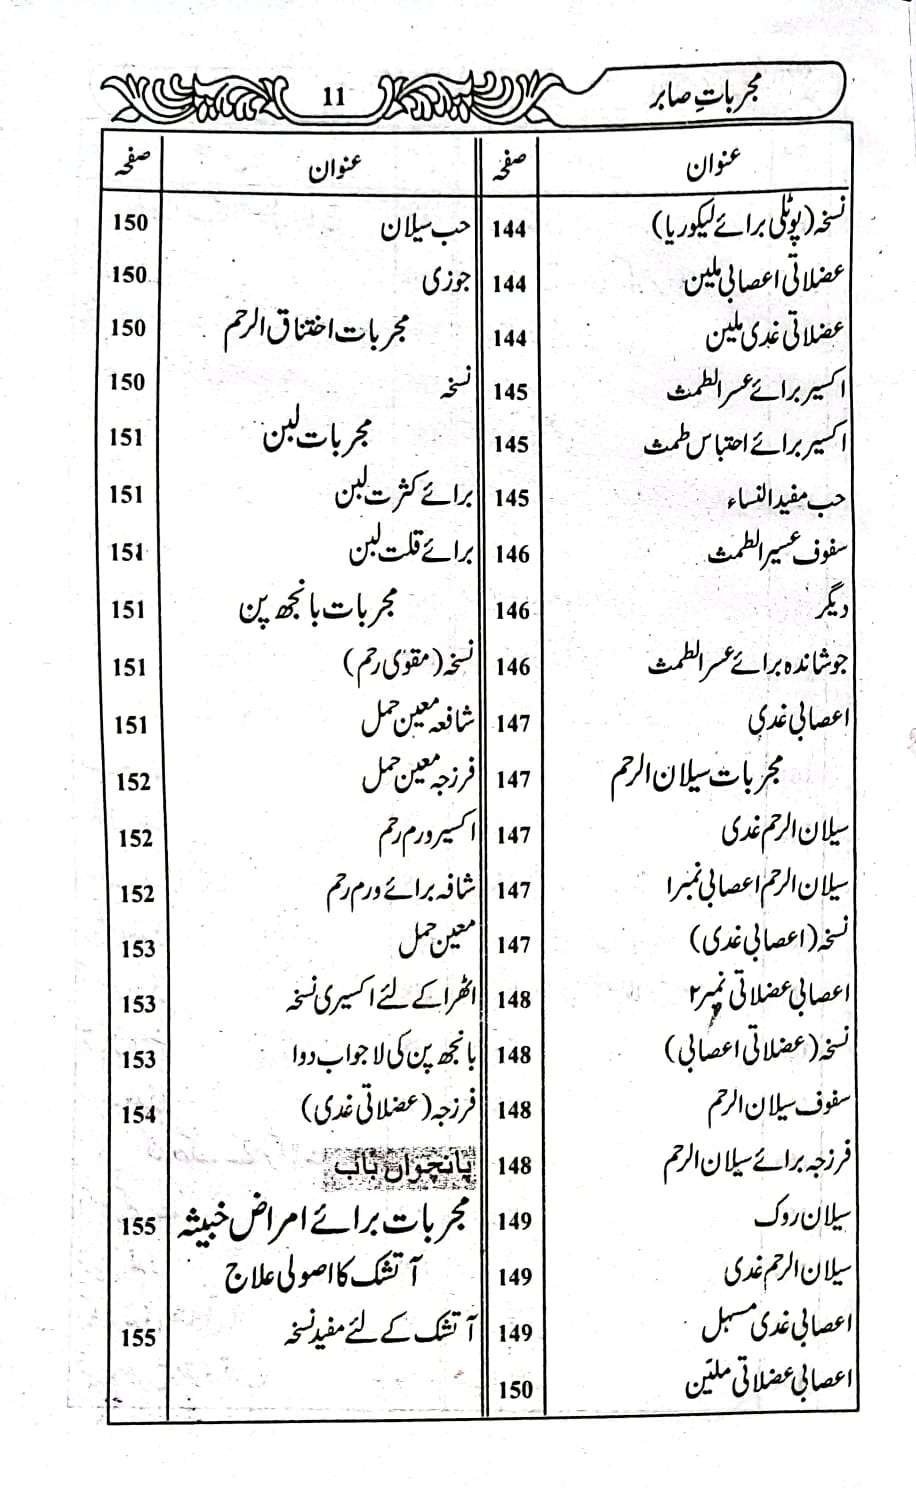 مجربات صابر
11
عنوان صفحہ
نسخہ (پوٹلی برائے لیکوریا) 144
عضلاتی اعصابی ملین 144
عضلاتی غدی ملین 144
اکسیر برائے عسر الطمث 145
اکسیر برائے احتباس طمث 145
حب مفید النساء 145
سفوف عسیر الطمث 146
دیگر 146
جوشاندہ برائے عسر الطمث 146
اعصابی غدی 147
مجربات سیلان الرحم 147
سیلان الرحم غدی 147
سیلان الرحم اعصابی نمبر ۱ 147
نسخہ (اعصابی غدی) 147
اعصابی عضلاتی نمبر ۲ 148
نسخہ (عضلاتی اعصابی) 148
سفوف سیلان الرحم 148
فرزجہ برائے سیلان الرحم 148
سیلان روک 149
سیلان الرحم غدی 149
اعصابی غدی مسہل 149
اعصابی عضلاتی ملیّن 150
عنوان صفحہ
حب سیلان 150
جوزی 150
مجربات اختناق الرحم 150
نسخہ 150
مجربات لبن 151
برائے کثرت لبن 151
برائے قلت لبن 151
مجربات بانجھ پن 151
نسخہ (مقوی رحم) 151
شافعہ معین حمل 151
فرزجہ معین حمل 152
اکسیر ورم رحم 152
شافہ برائے ورم رحم 152
معین حمل 153
اٹھرا کے لئے اکسیری نسخہ 153
بانجھ پن کی لاجواب دوا 153
فرزجہ (عضلاتی غدی) 154
پانچواں باب
مجربات برائے امراض خبیثہ 155
آتشک کا اصولی علاج
آتشک کے لئے مفید نسخہ 155